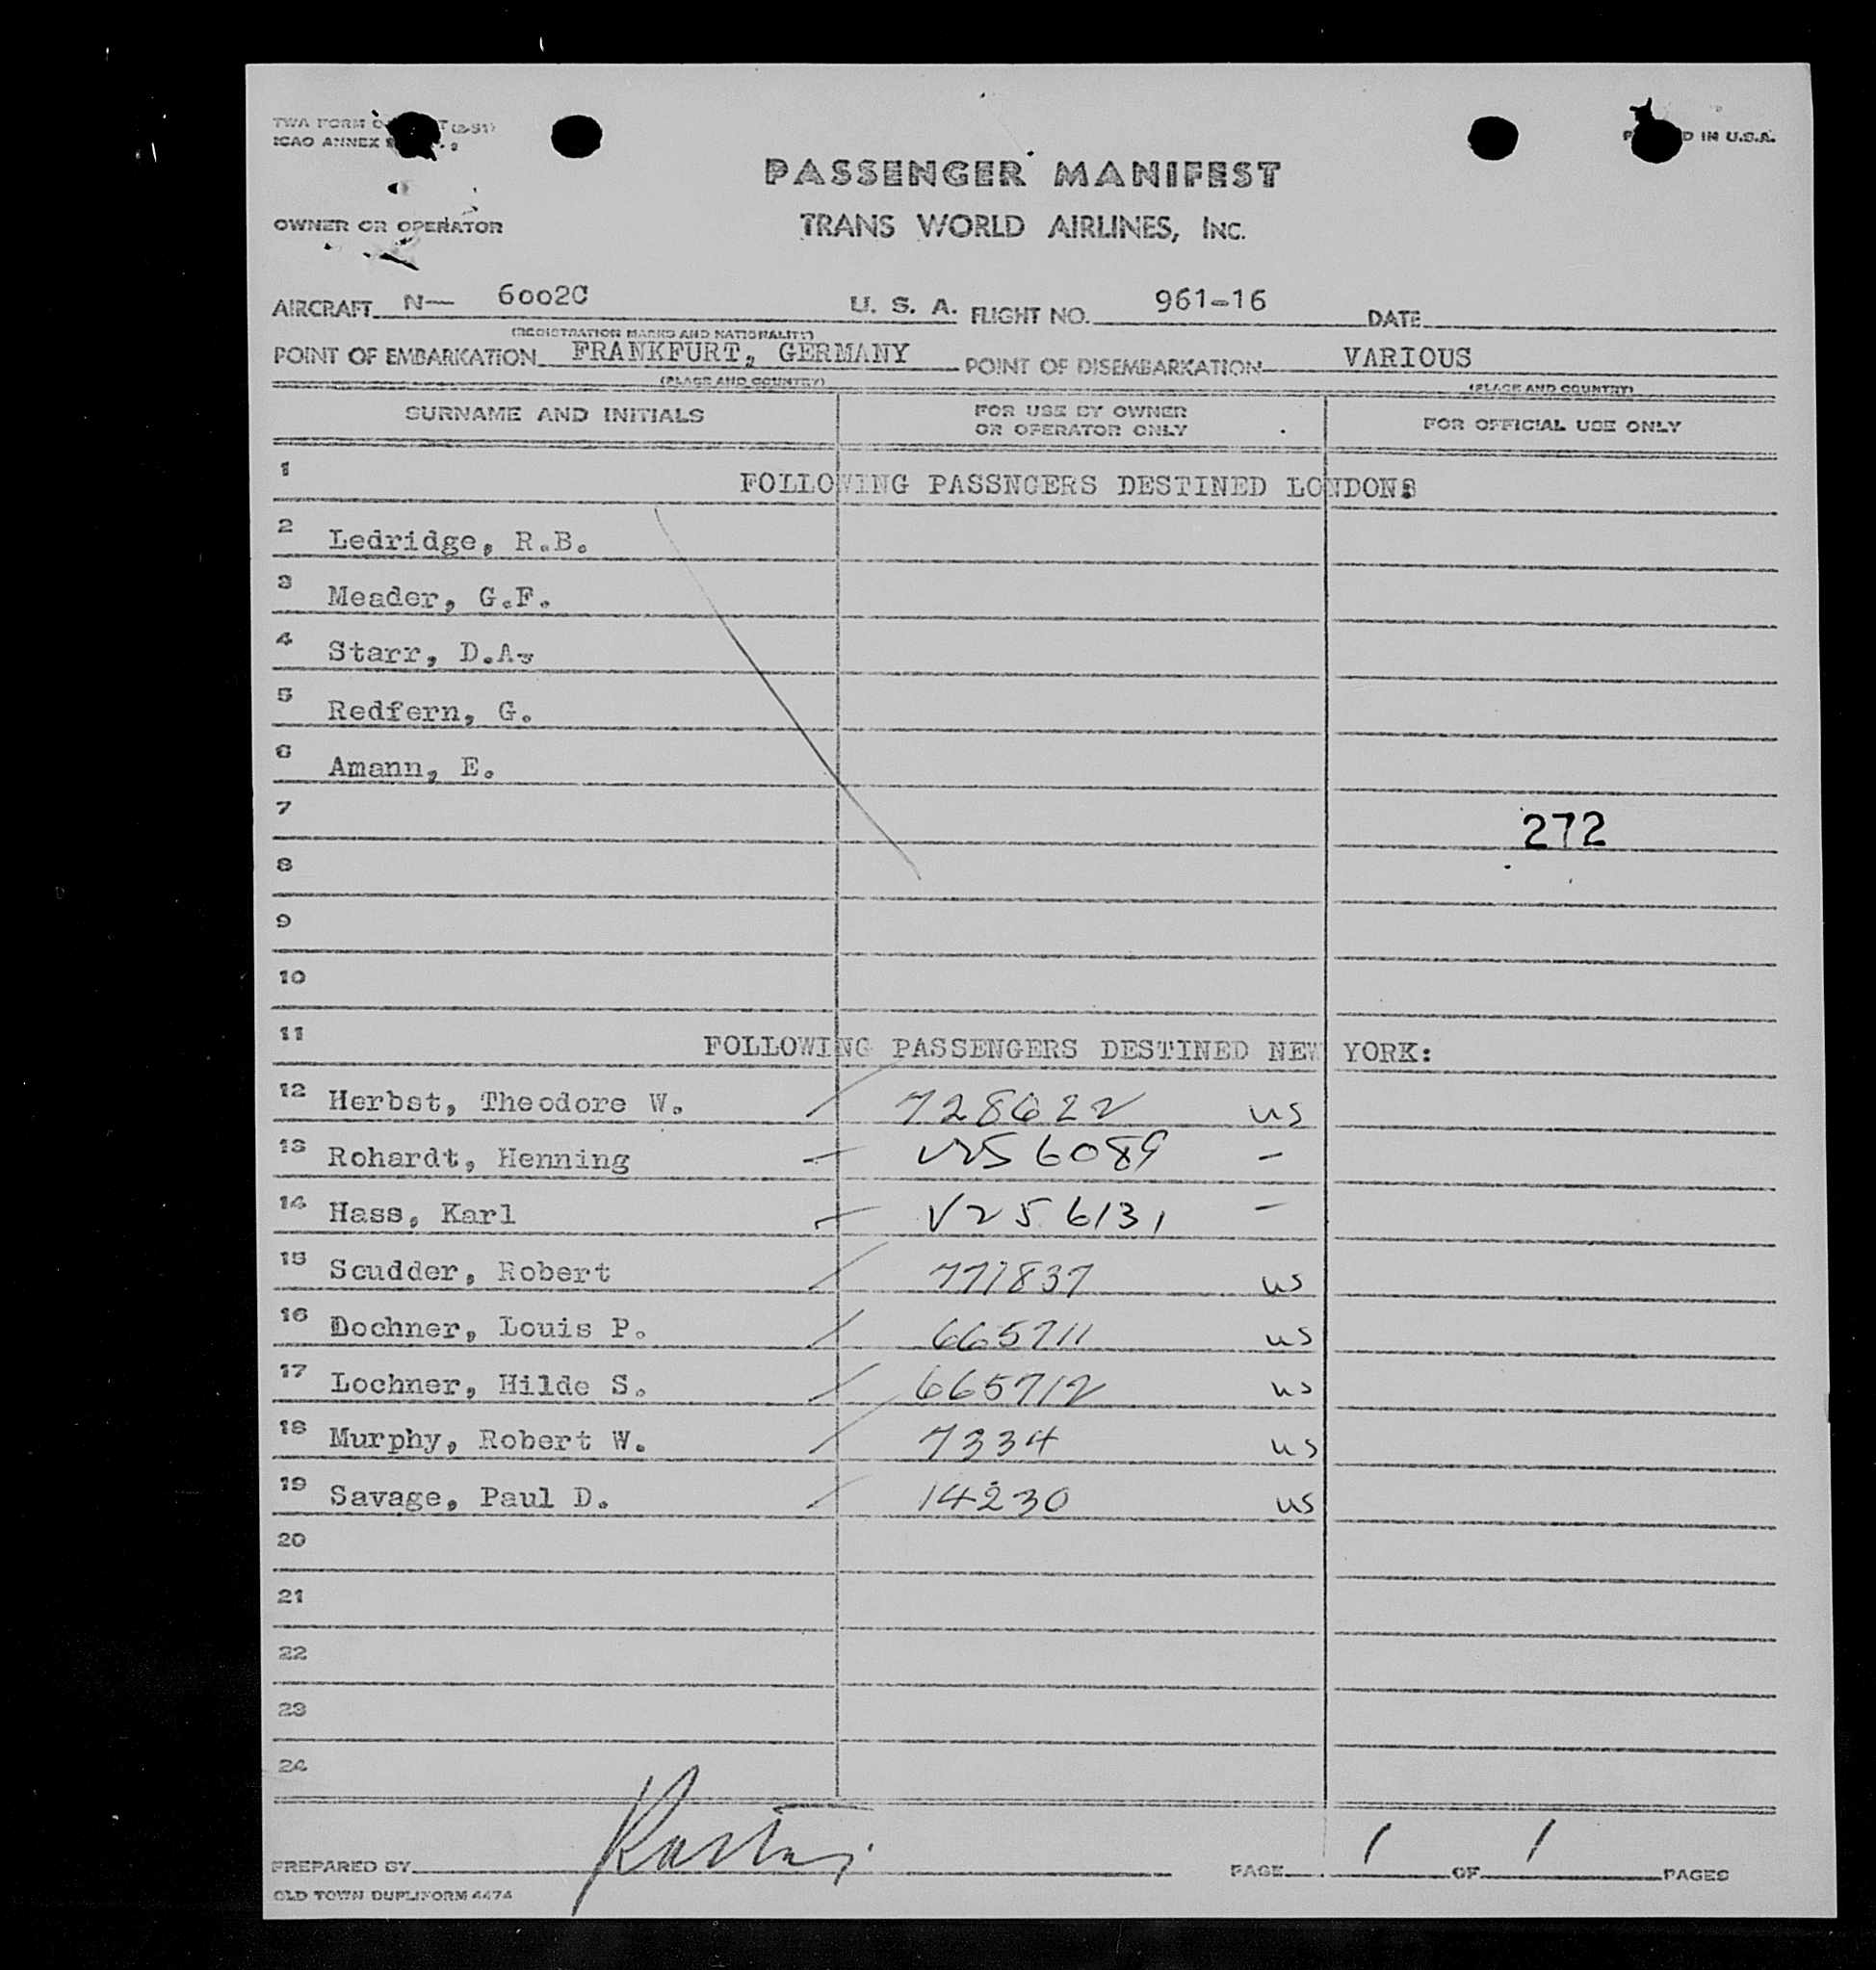 TWA FORM
ICAO ANNEX
PRINTED IN U.S.A.
PASSENGER MANIFEST
OWNER OR OPERATOR TRANS WORLD AIRLINES, INC.
AIRCRAFT N— 6002C U. S. A. FLIGHT NO. 961-16 DATE
(REGISTRATION MARKS AND NATIONALITY)
POINT OF EMBARKATION FRANKFURT, GERMANY POINT OF DISEMBARKATION VARIOUS
(PLACE AND COUNTRY) (PLACE AND COUNTRY)
SURNAME AND INITIALS FOR USE BY OWNER OR OPERATOR ONLY FOR OFFICIAL USE ONLY
1 FOLLOWING PASSNGERS DESTINED LONDON:
2 Ledridge, R.B.
3 Meader, G.F.
4 Starr, D.A.
5 Redfern, G.
6 Amann, E.
7 272
8
9
10
11 FOLLOWING PASSENGERS DESTINED NEW YORK:
12 Herbst, Theodore W. / 728622 us
13 Rohardt, Henning — V256089 —
14 Hass, Karl — V256131 —
15 Scudder, Robert / 771837 us
16 Dochner, Louis P. / 665711 us
17 Lochner, Hilde S. / 665712 us
18 Murphy, Robert W. / 7334 us
19 Savage, Paul D. / 14230 us
20
21
22
23
24
PREPARED BY PAGE 1 OF 1 PAGES
OLD TOWN DUPLIFORM 4474